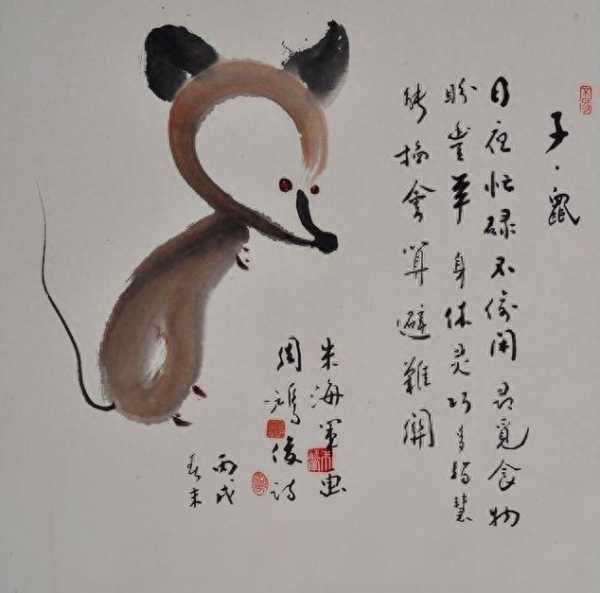 子·鼠
日夜忙碌不偷闲寻觅食物
盼豊年身体灵巧多智慧
能掐會算避難關
朱海军画
周鸿俊诗
丙戌
春末